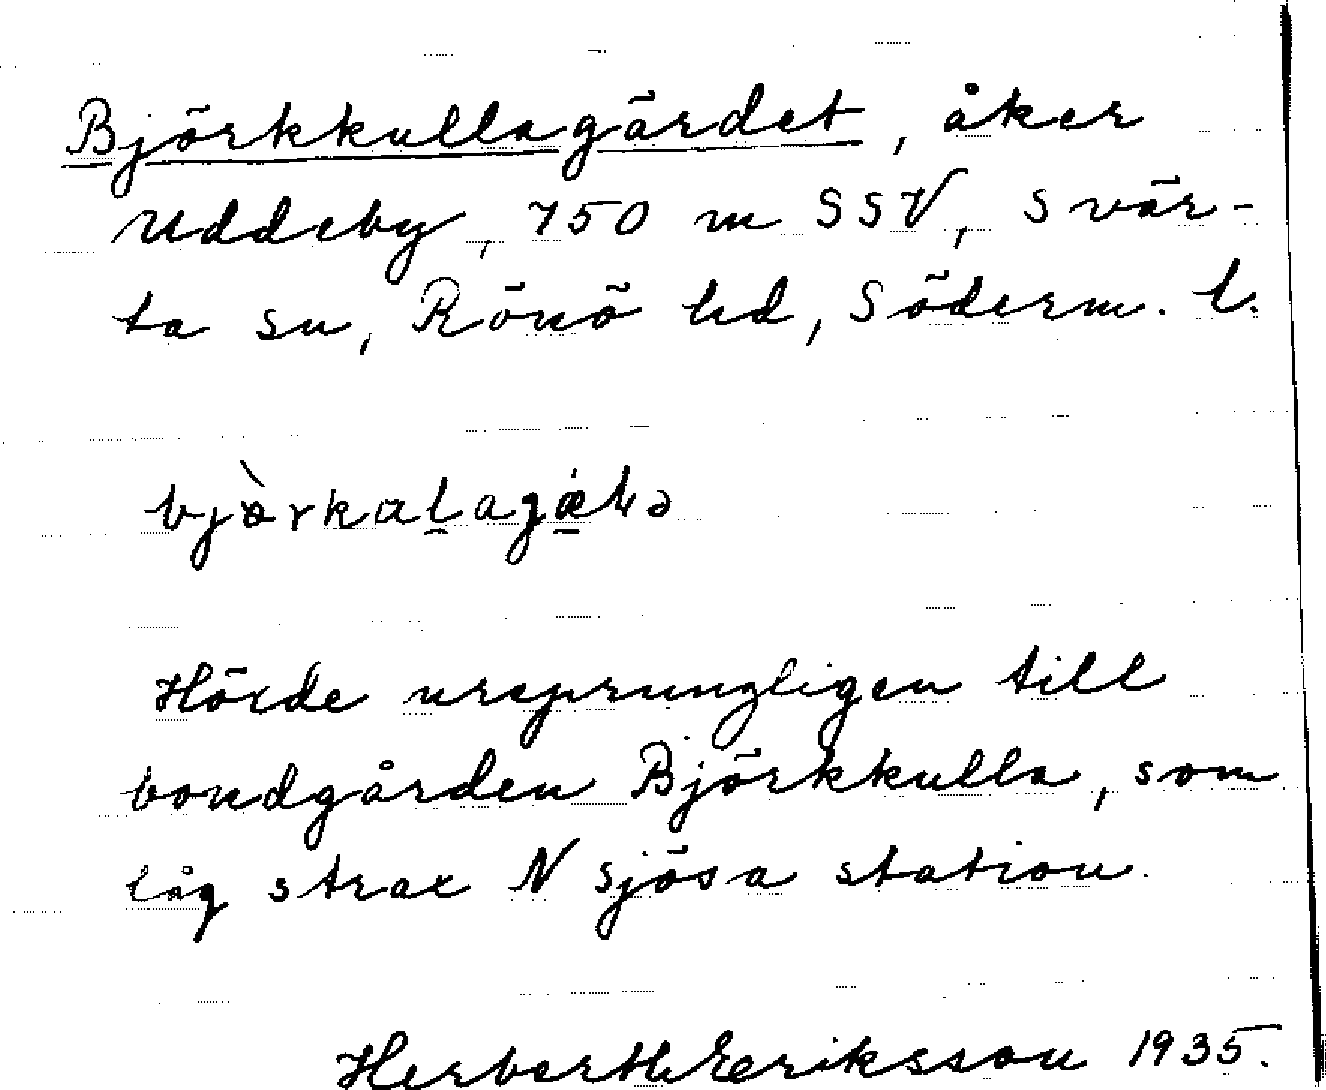 Björkkullagärdet, åker
Uddeby, 750 m SSV, Svär-
ta sn, Rönö hd, Söderm. l.
Hörde ursprungligen till
bondgården Björkkulla, som
låg strax N Sjösa station.
Herberth Eriksson 1935.